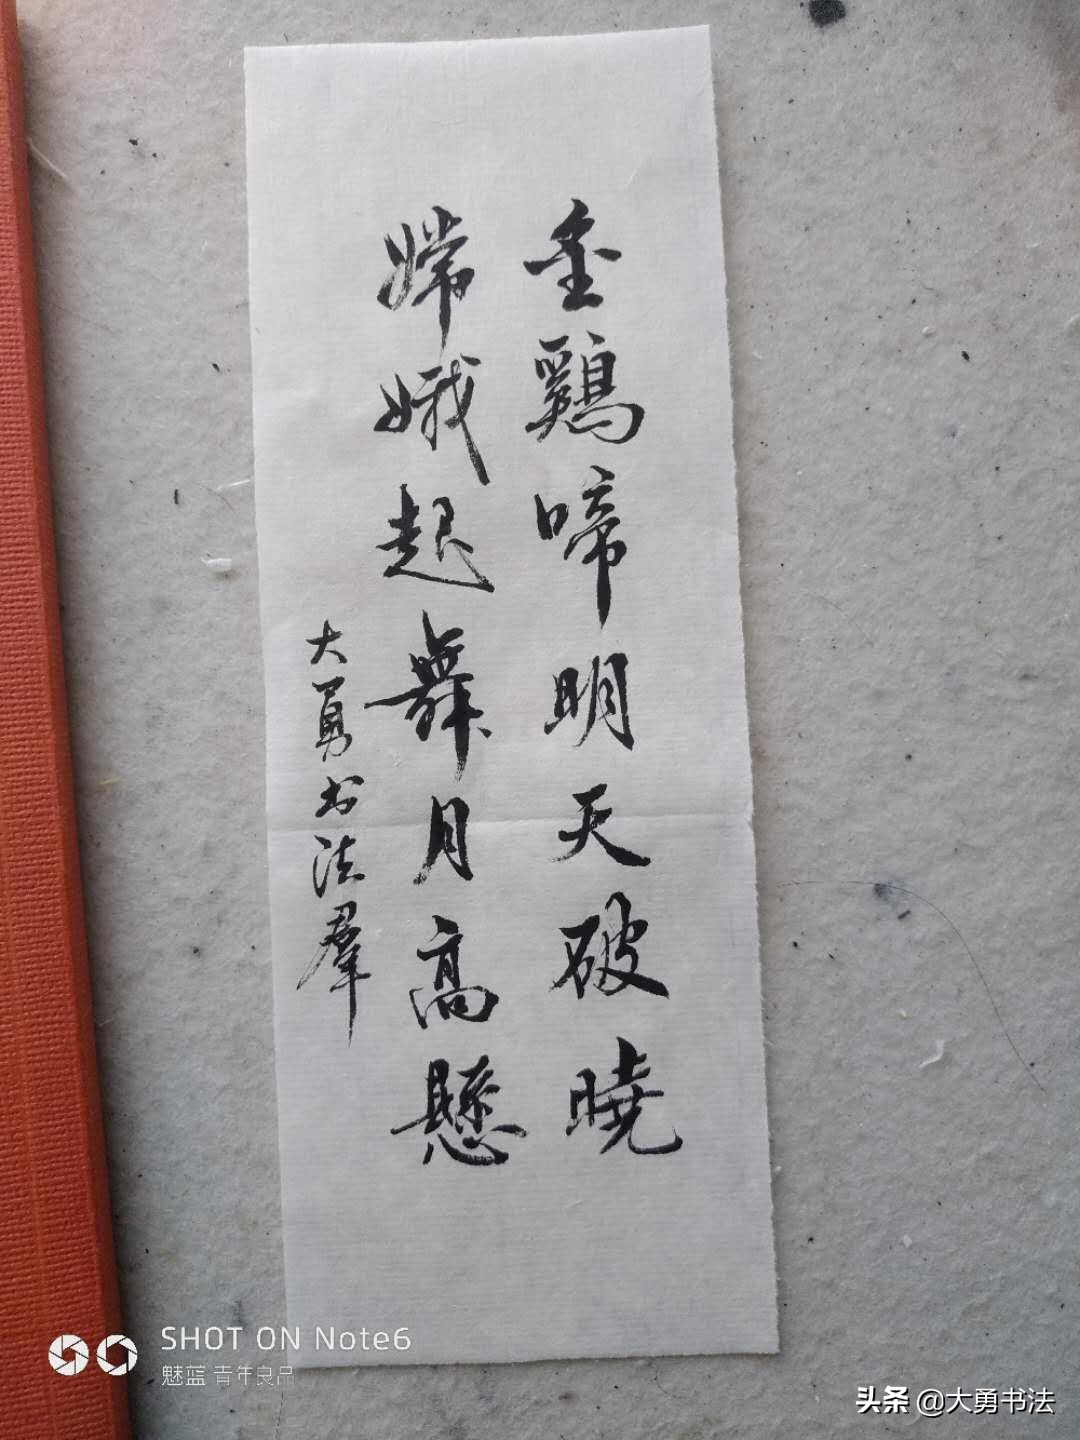 金鷄啼明天破曉
嫦娥起舞月高懸
大勇书法羣
SHOT ON Note6
魅蓝 青年良品
头条 @大勇书法